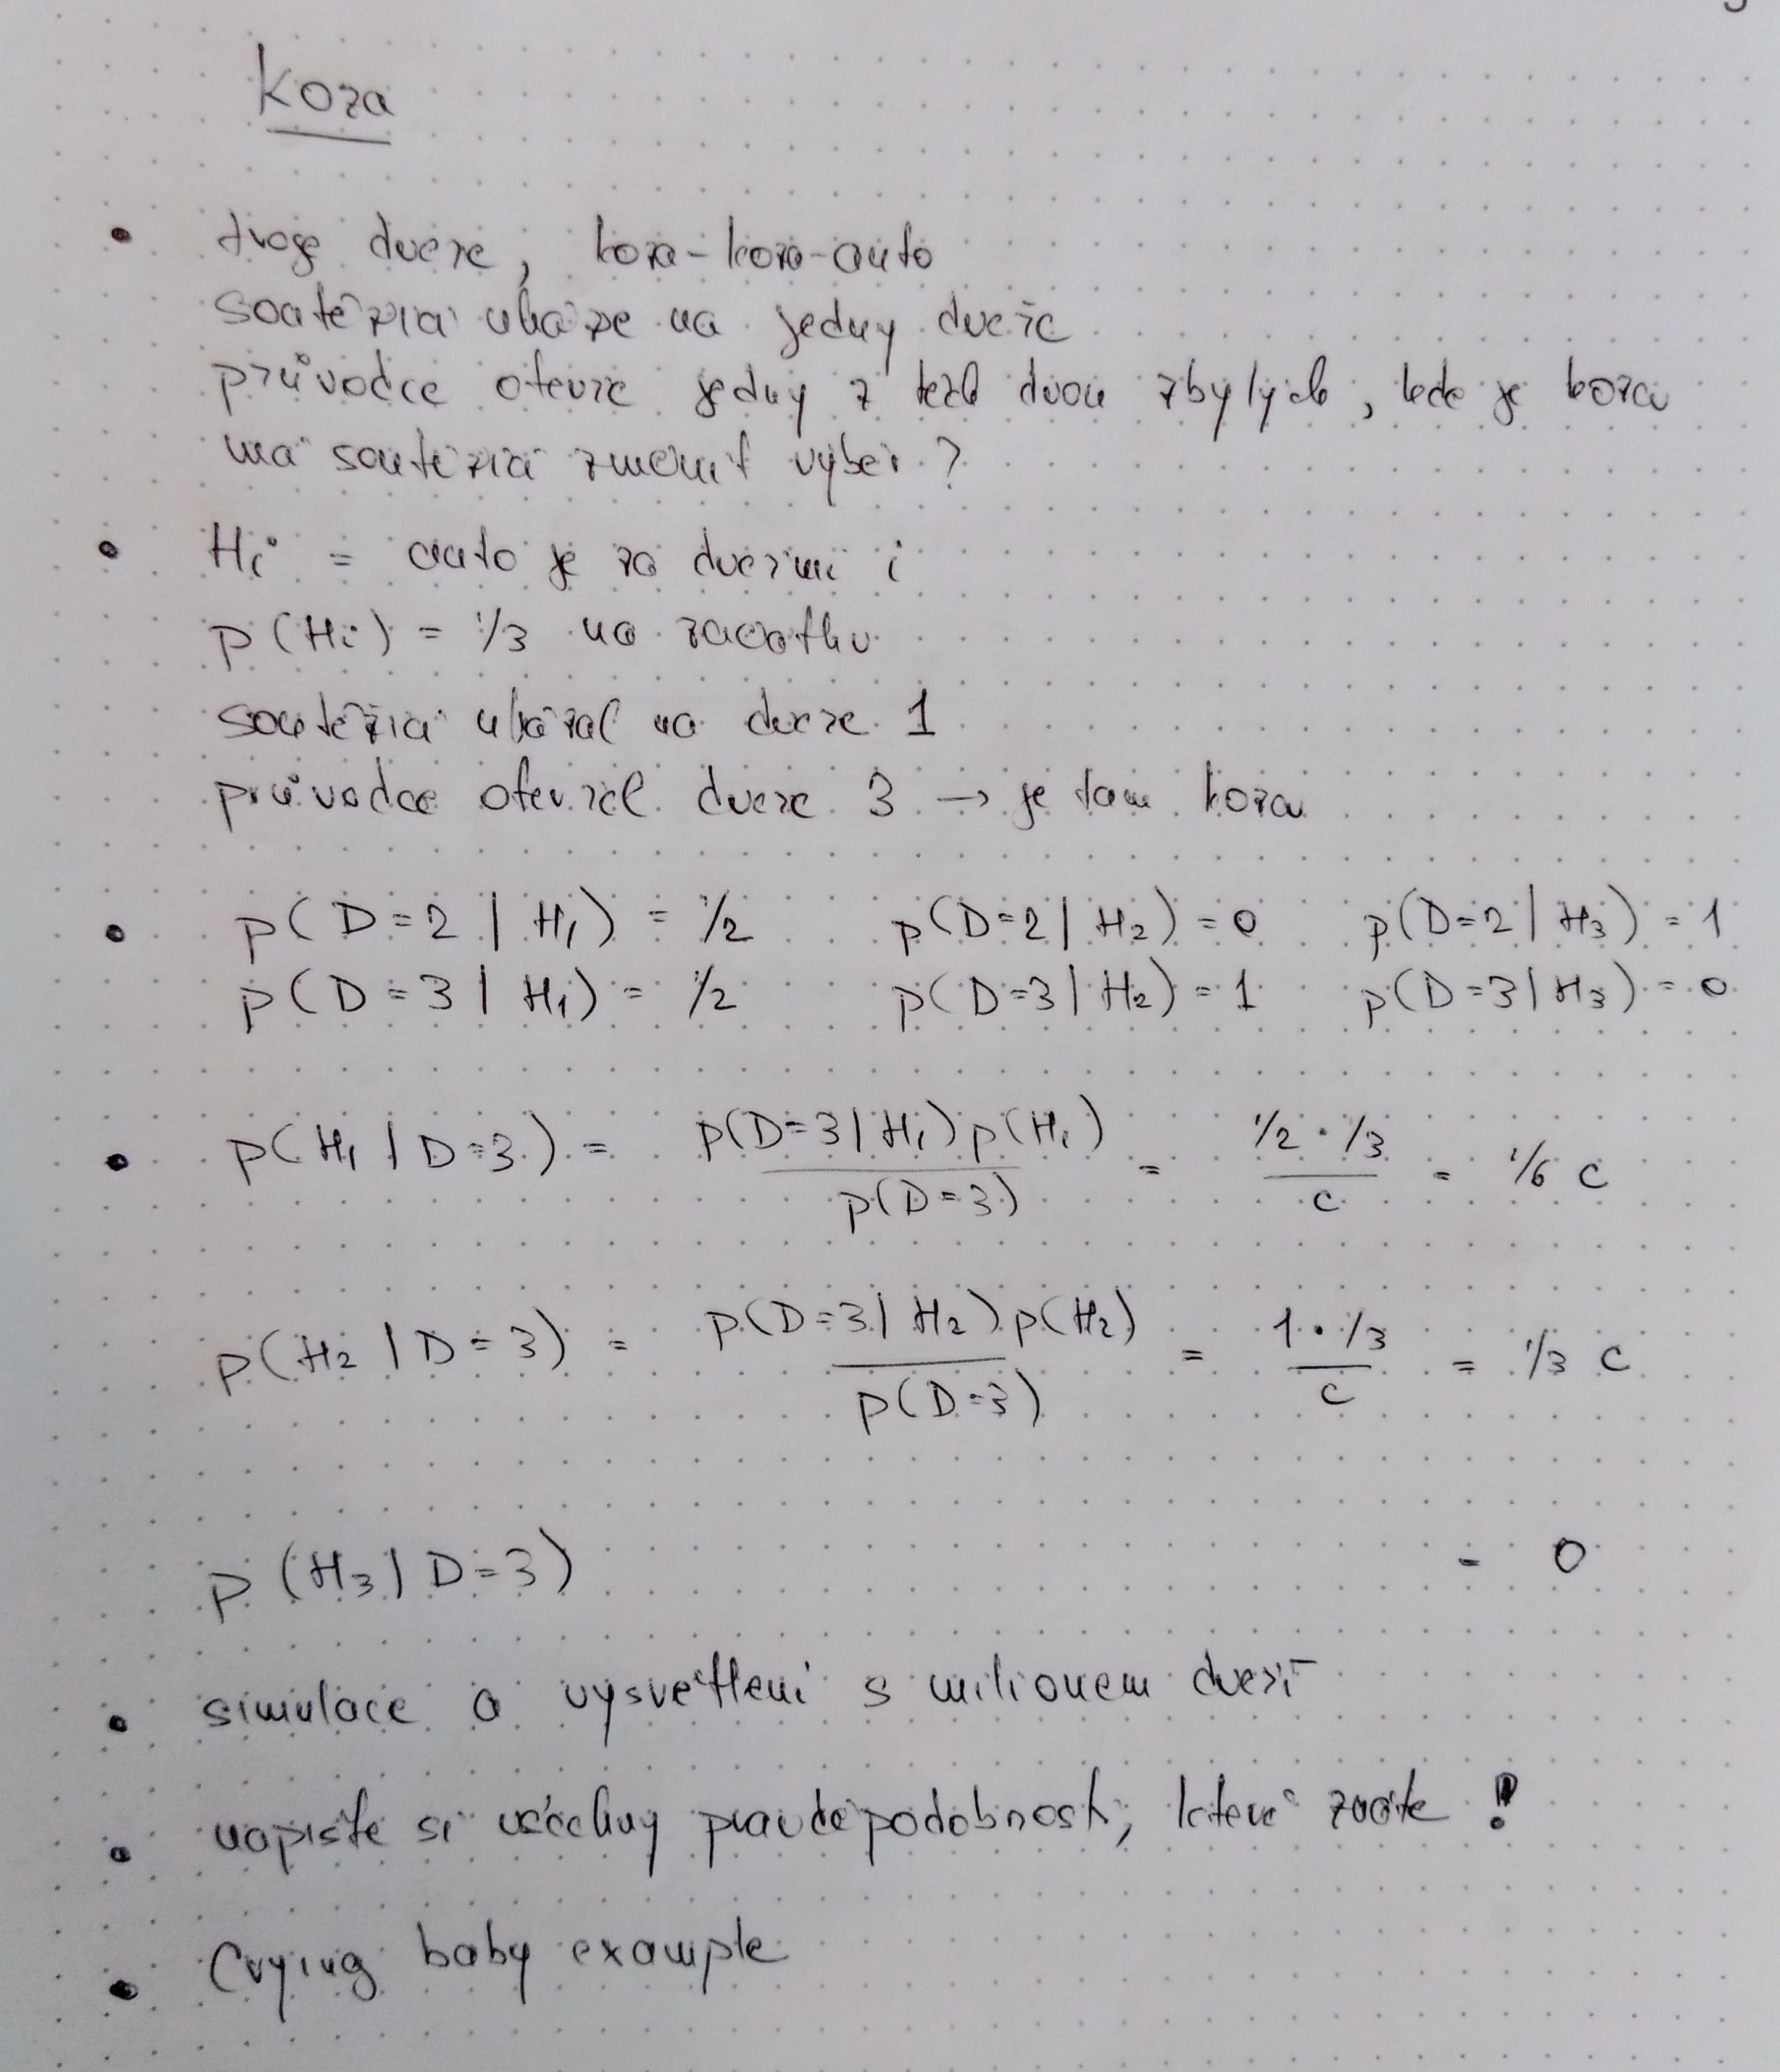 Koza
troje dveře, koza-koza-auto
soutěžící ukáže na jedny dveře
průvodce otevře jedny z těch dvou zbylých, kde je koza
má soutěžící změnit výběr?
Hi = auto je za dveřmi i
p(Hi) = 1/3 na začátku
soutěžící ukázal na dveře 1
průvodce otevřel dveře 3 → je tam koza
p(D=2 | H1) = 1/2 p(D=2 | H2) = 0 p(D=2 | H3) = 1
p(D=3 | H1) = 1/2 p(D=3 | H2) = 1 p(D=3 | H3) = 0
p(H1 | D=3) = p(D=3 | H1) p(H1) / p(D=3) = 1/2 · 1/3 / c = 1/6 c
p(H2 | D=3) = p(D=3 | H2) p(H2) / p(D=3) = 1 · 1/3 / c = 1/3 c
p(H3 | D=3) = 0
simulace a vysvětlení s milionem dveří
napište si všechny pravděpodobnosti, které znáte!
Crying baby example